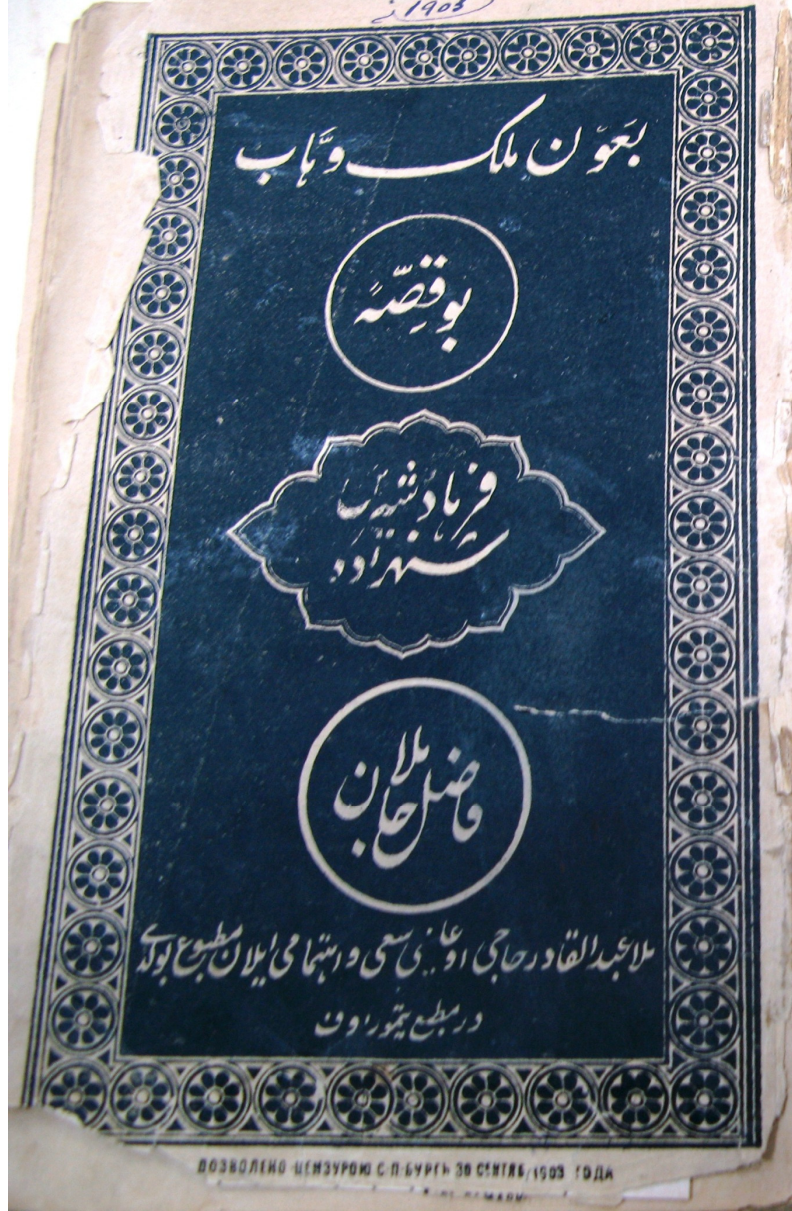 1903
بعون ملک وهاب
بو قصّهٔ
فرهاد شیرین
شهزاده
ملا
فاضل جان
ملا عبدالقادر حاجی اوغلی سعی و اهتمامی ایلان مطبوع بولدی
در مطبع تیموروف
ДОЗВОЛЕНО ЦЕНЗУРОЮ С-П-БУРГЪ 30 СЕНТЯБ, 1903 ГОДА